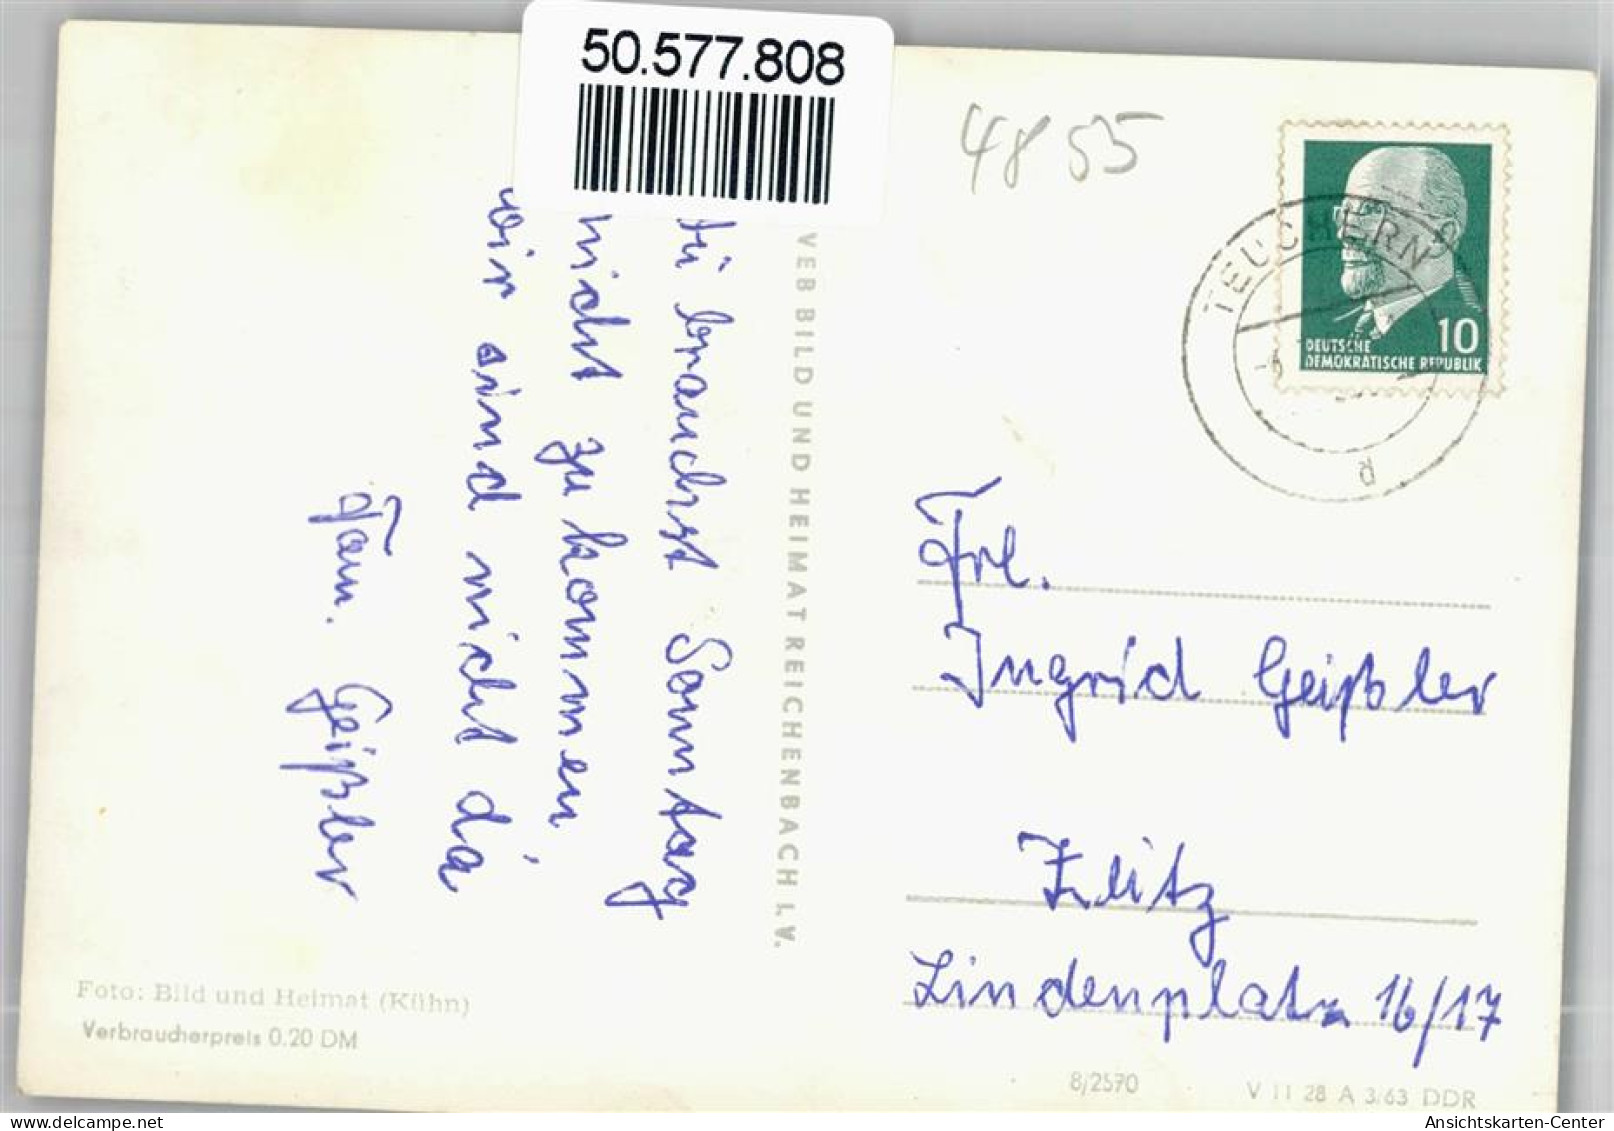 50.577.808
4855
TEUCHERN
10
DEUTSCHE
DEMOKRATISCHE REPUBLIK
dü brauchst Sonntag
nicht zu kommen
wir sind nicht da
Fam. Geißler
VEB BILD UND HEIMAT REICHENBACH I. V.
Frl.
Ingrid Geißler
Zeitz
Lindenplatz 16/17
Foto: Bild und Heimat (Kühn)
Verbraucherpreis 0.20 DM
8/2570
V 11 28 A 3/63 DDR
Ansichtskarten-Center